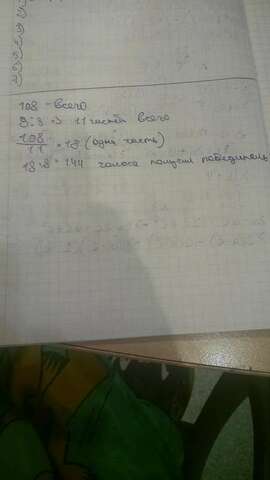 108 - всего
3:8 => 11 частей всего
108/11 = 18 (одна часть)
18·8 = 144 голоса получил победитель